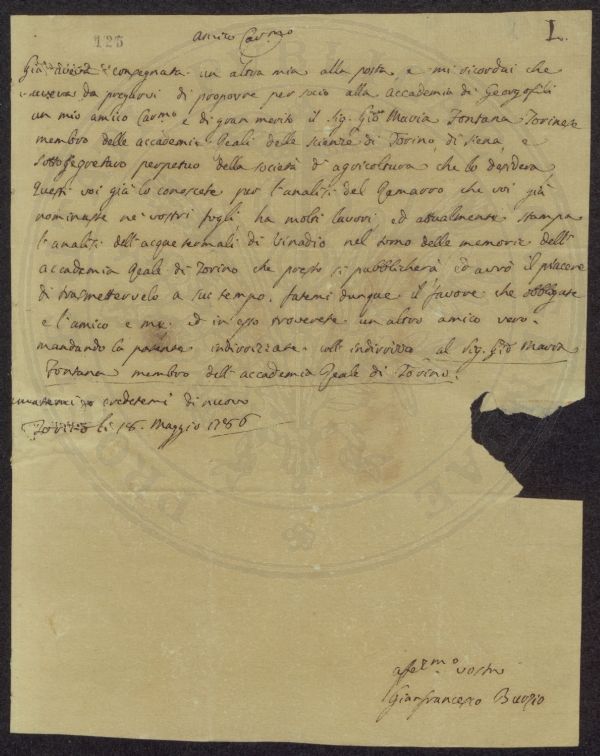 125
L.
Amico Car.mo
Già aveva consegnata un altra mia alla posta, e mi ricordai che
aveva da pregarvi di proporre per socio alla accademia di Georgofili
un mio amico Carmo e di gran merito il Sig. Gio Maria Fontana Torinese
membro delle accademie Reali delle scienze di Torino, di siena, e
sotto segretario perpetuo della società d'agricoltura che lo desidera,
Questi voi già lo conoscete per l'analisi del che voi già
nominaste ne' vostri fogli, ha molti lavori, ed attualmente stampa
l'analisi dell'acque termali di Vinadio nel tomo delle memorie dell'
accademia Reale di Torino che presto si pubblicherà ed avrò il piacere
di trasmettervelo a suo tempo. fatemi dunque il favore che obbligate
e l'amico e me. ed in esso troverete un altro amico vero.
mandando la patente indirizzate coll'indirizzo al Sig. Gio Maria
Fontana membro dell'accademia Reale di Torino.
credetemi di nuovo
Torino li 18. Maggio 1786
affe.mo vostro
Gianfrancesco